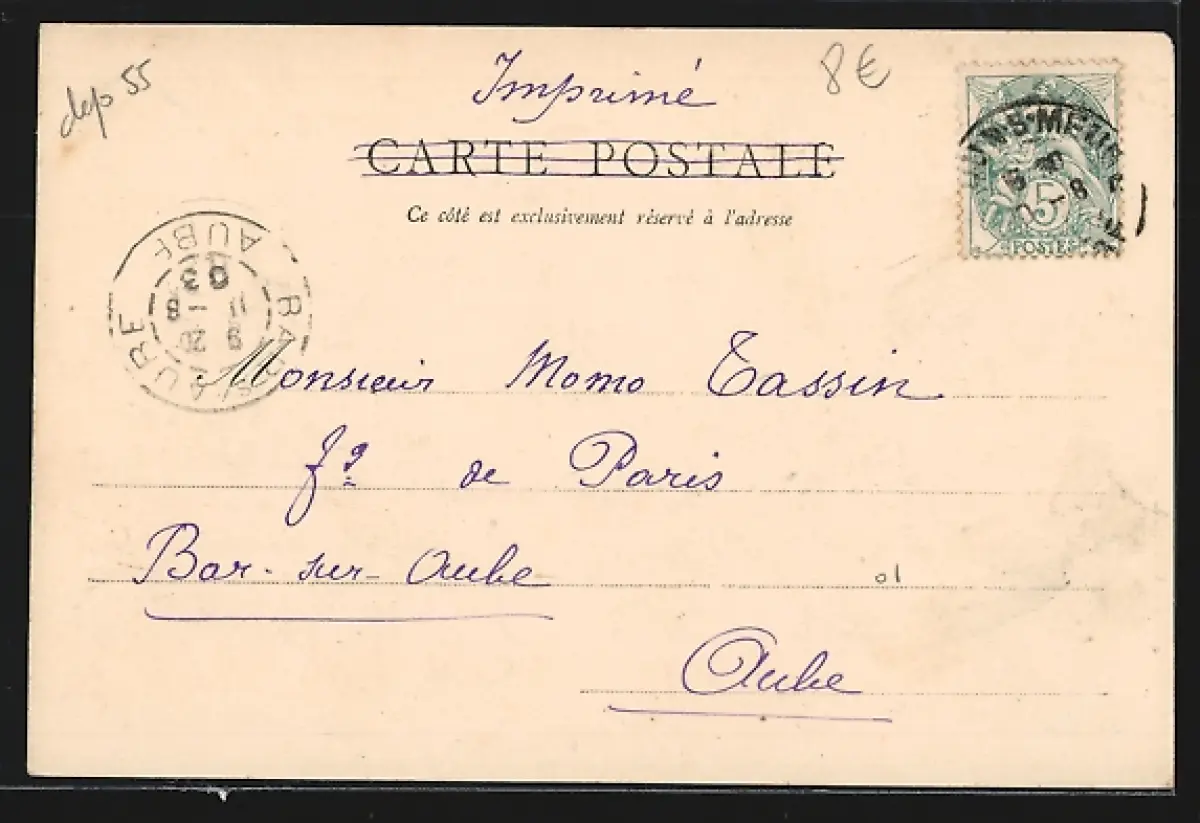 dep 55
8€
Imprimé
CARTE POSTALE
Ce côté est exclusivement réservé à l'adresse
5
POSTES
AUBE
BAR S/ AUBE
9 20
11 - 8
03
Monsieur Momo Tassin
fg de Paris
Bar-sur-Aube
ol
Aube